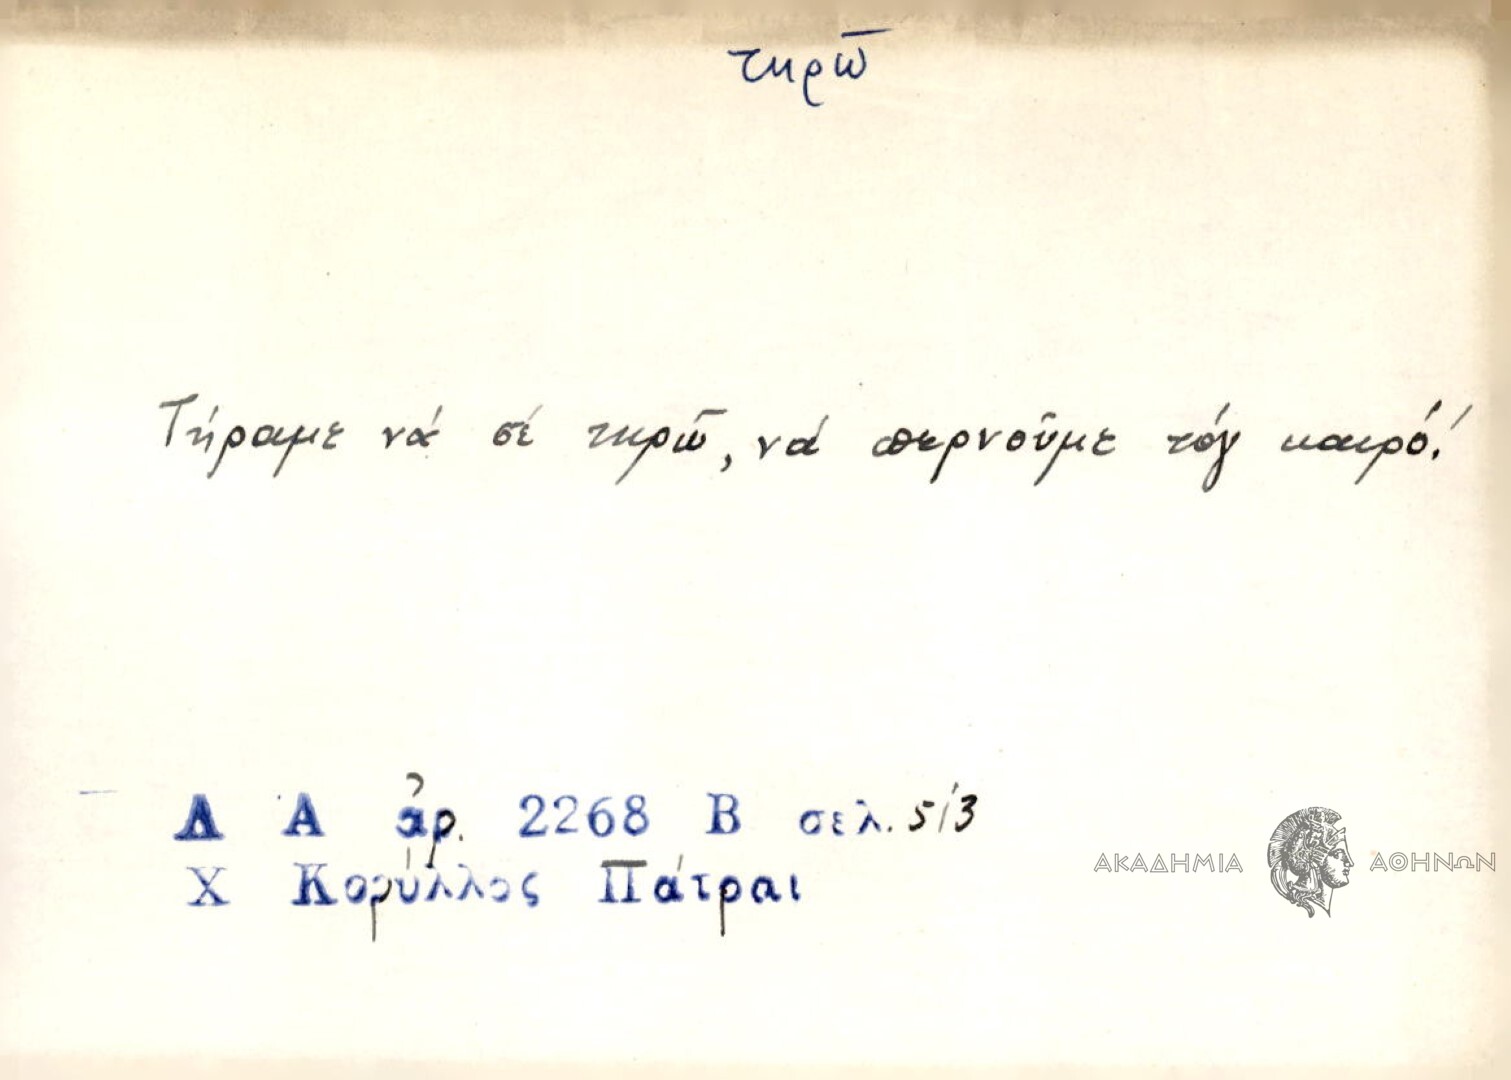 τηρῶ
Τήραμε νά σέ τηρῶ, νά περνοῦμε τόγ καιρό!
Λ Α ἀρ. 2268 Β σελ. 513
Χ Κορύλλος Πάτραι
ΑΚΑΔΗΜΙΑ ΑΘΗΝΩΝ